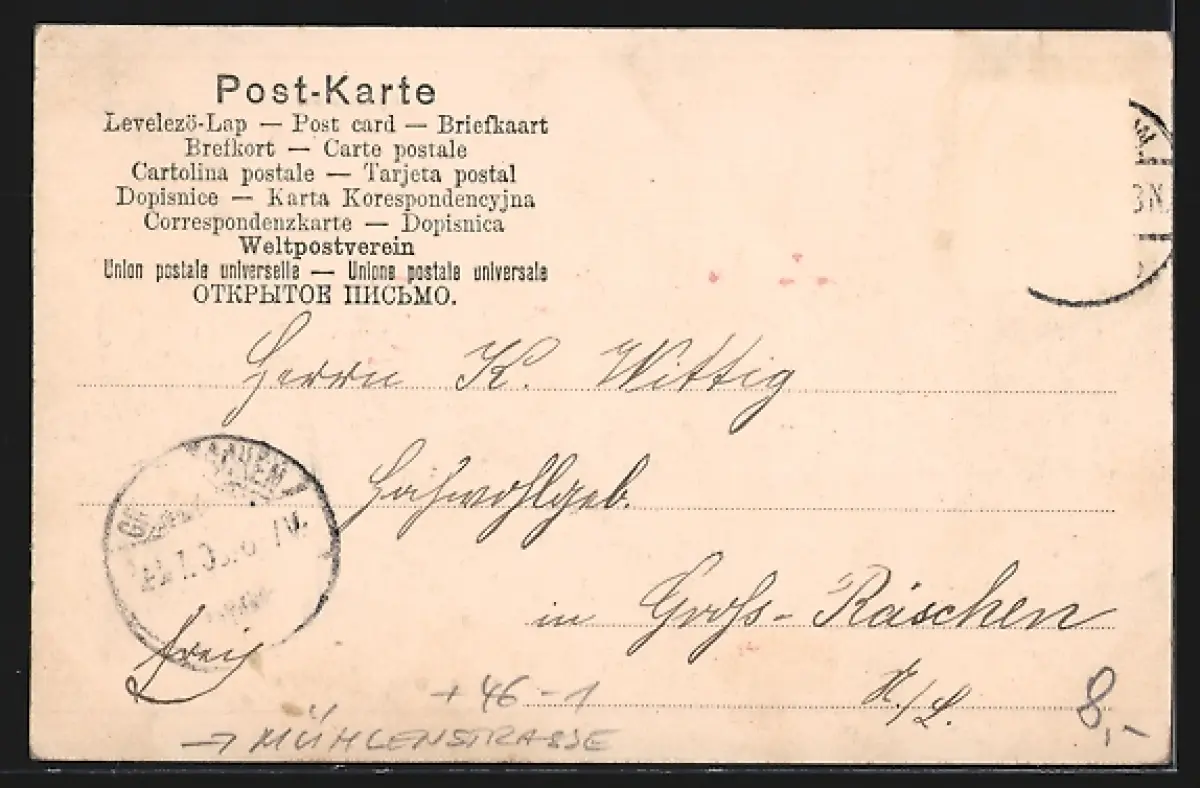 Post-Karte
Levelező-Lap — Post card — Briefkaart
Brefkort — Carte postale
Cartolina postale — Tarjeta postal
Dopisnice — Karta Korespondencyjna
Correspondenzkarte — Dopisnica
Weltpostverein
Union postale universelle — Unione postale universale
ОТКРЫТОЕ ПИСЬМО.
Herrn K. Wittig
Hochwohlgeb.
in Gross-Räschen
N./L.
frei
+ 46 - 1
→ MÜHLENSTRASSE
8,-